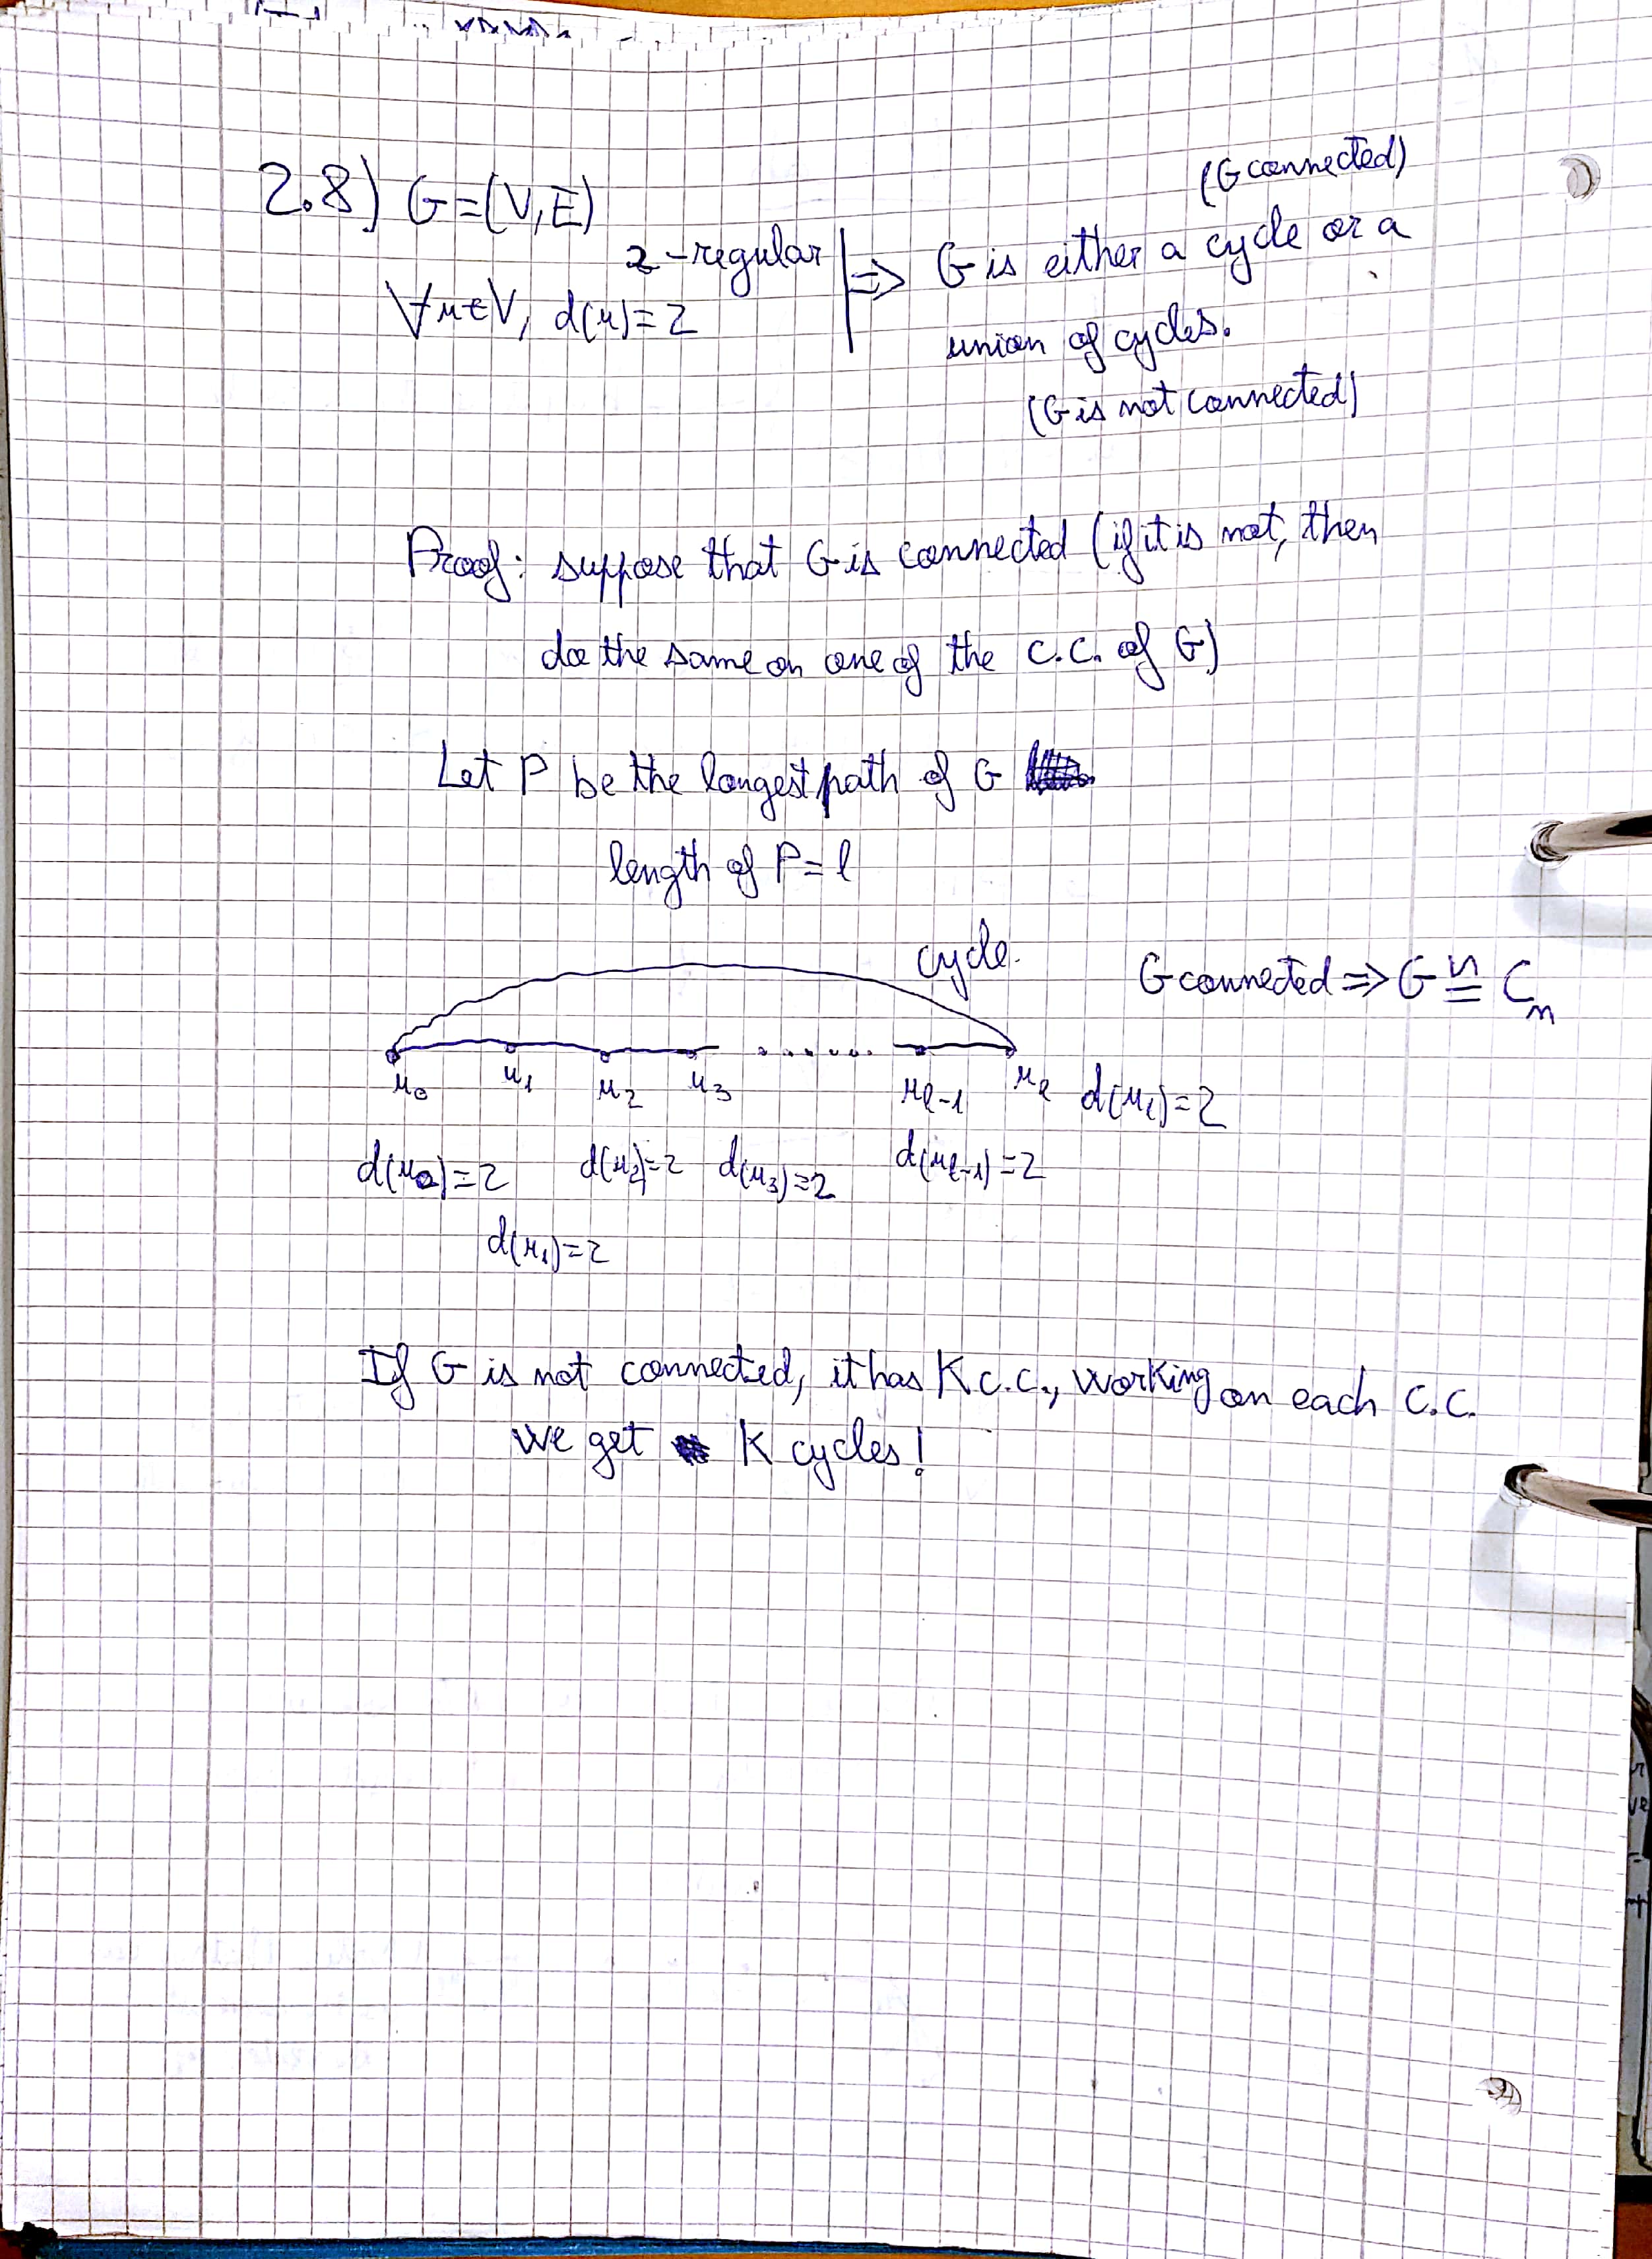 2.8) G=(V,E)
2-regular
∀u∈V, d(u)=2
(G connected)
⇒ G is either a cycle or a
union of cycles.
(G is not connected)
Proof: suppose that G is connected (if it is not, then
do the same on one of the c.c. of G)
Let P be the longest path of G
length of P = l
cycle.
G connected ⇒ G ≅ Cn
u0 u1 u2 u3 ...... ul-1 ul
d(ul)=2
d(u0)=2 d(u2)=2 d(u3)=2 d(ul-1)=2
d(u1)=2
If G is not connected, it has K c.c., working on each c.c.
we get K cycles!